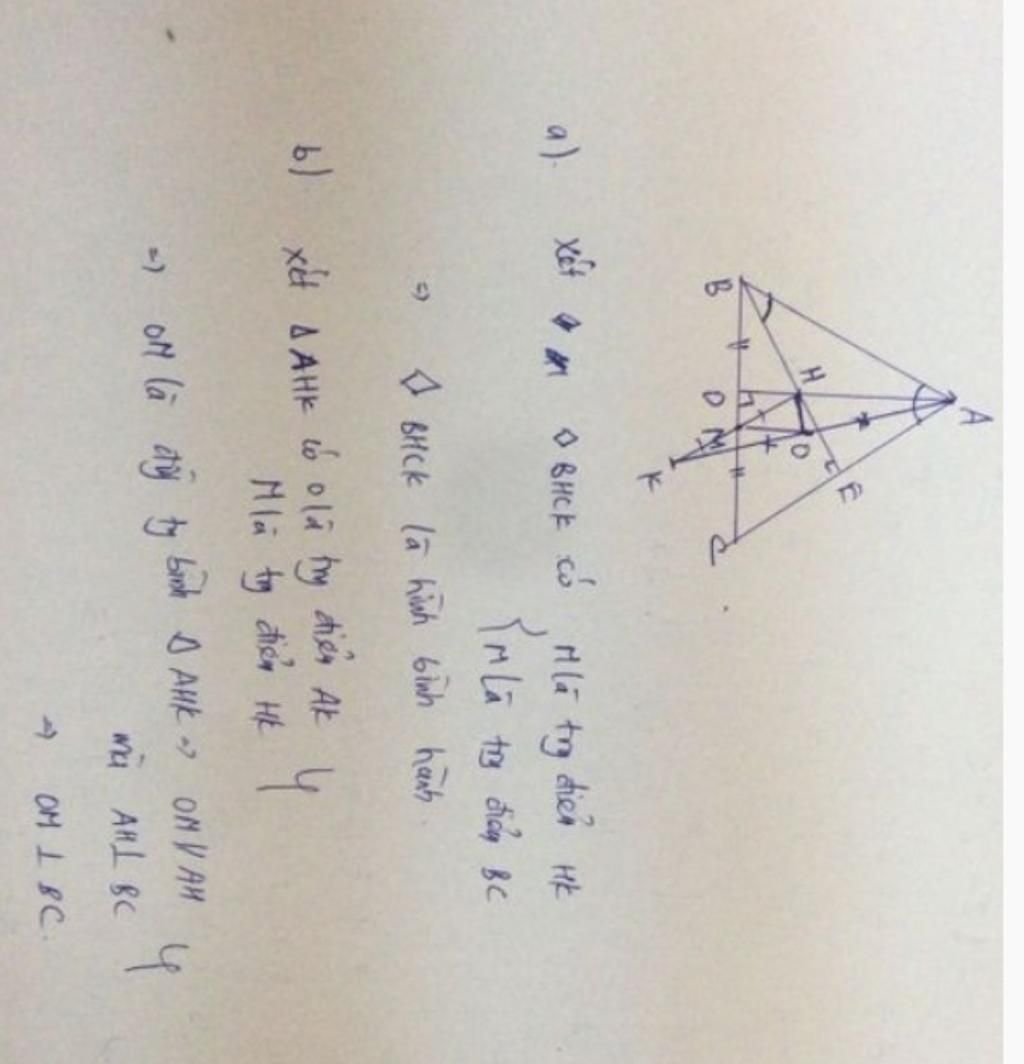 A
B
H
E
O
D
M
C
K
a). xét ◇ BHCK có { M là trg điểm HK
M là trg điểm BC
=> ◇ BHCK là hình bình hành.
b) xét Δ AHK có O là trg điểm AK
M là trg điểm HK
=> OM là đg tg bình Δ AHK => OM // AH
mà AH ⊥ BC
=> OM ⊥ BC.